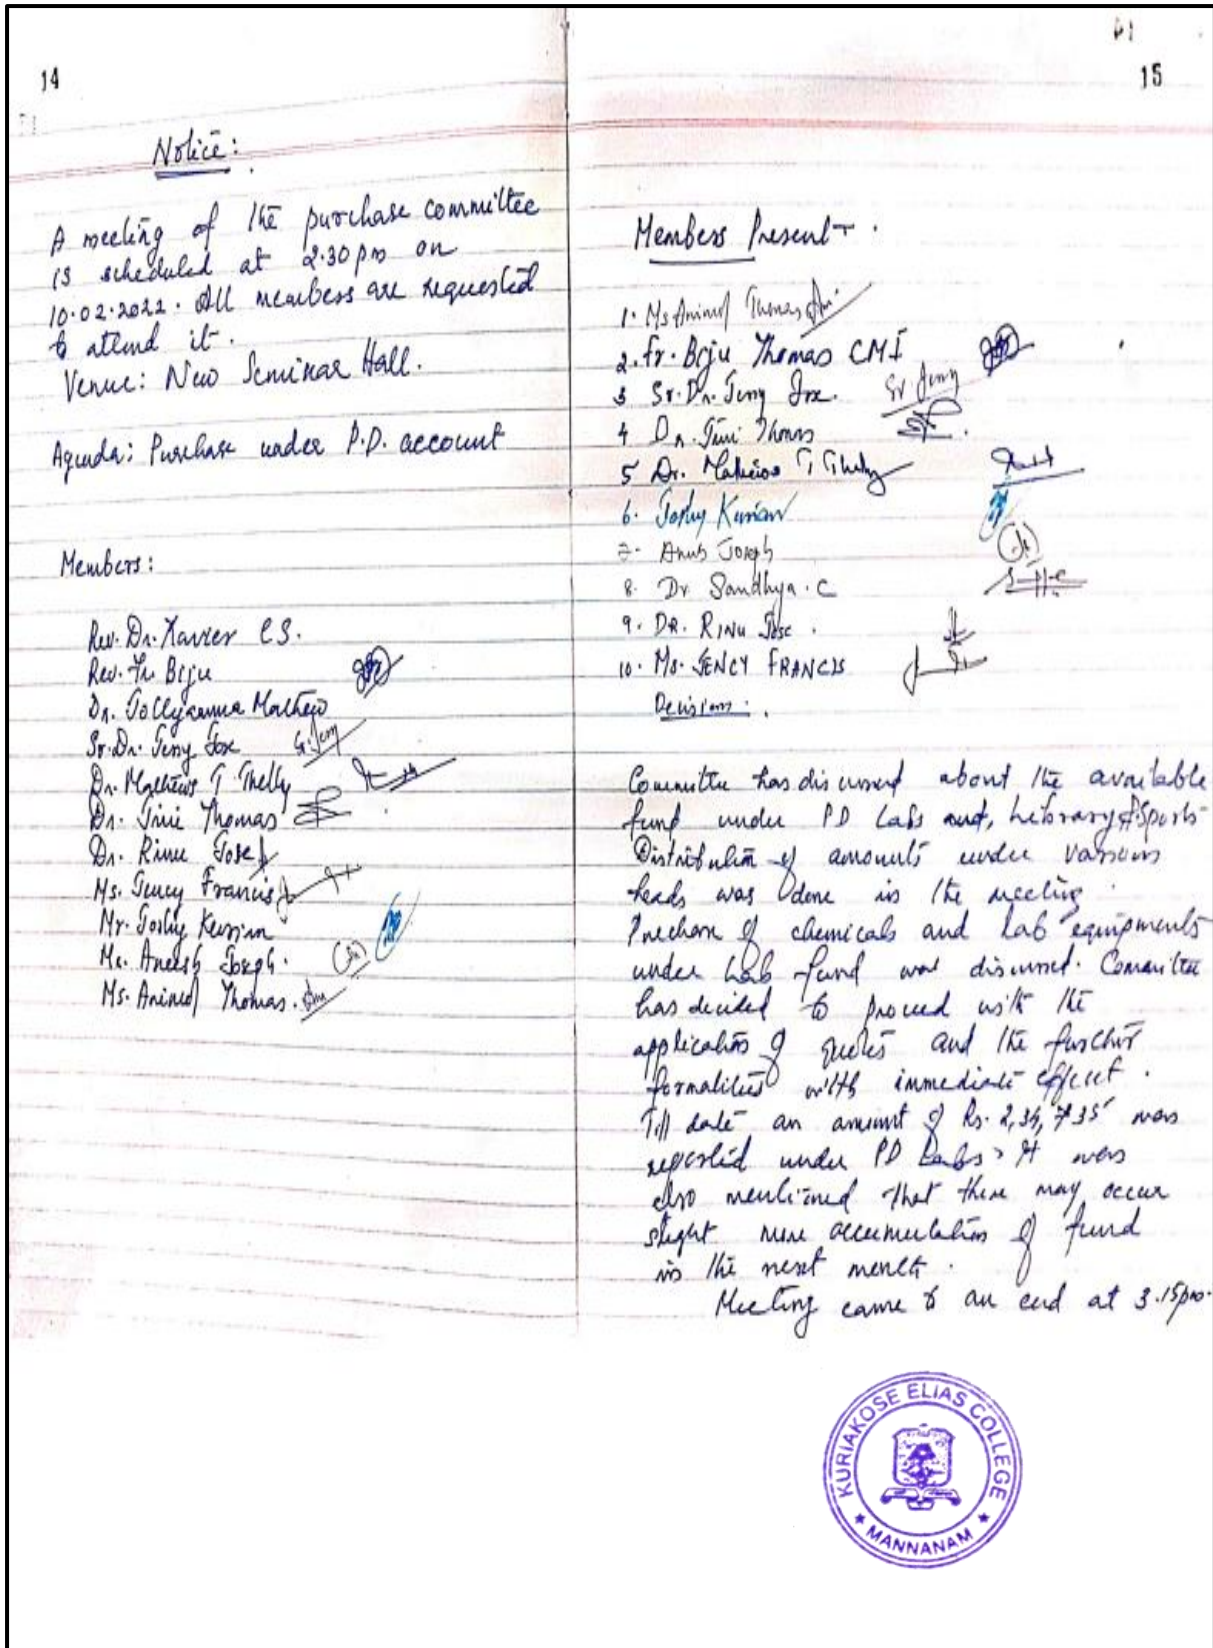 14
Notice:
A meeting of the purchase committee
is scheduled at 2.30 pm on
10.02.2022. All members are requested
to attend it.
Venue: New Seminar Hall.
Agenda: Purchase under P.D. account
Members:
Rev. Dr. Xavier C.S.
Rev. Fr. Biju
Dr. Jollyamma Mathew
Sr. Dr. Jeny Jose
Dr. Mathews T Thelly
Dr. Jini Thomas
Dr. Rinu Jose
Ms. Jency Francis
Mr. Joshy Kurian
Mr. Aneesh Joseph.
Ms. Animol Thomas.
15
Members Present.
1. Ms Animol Thomas
2. Fr. Biju Thomas CMI
3 Sr. Dr. Jeny Jose. Sr. Jeny
4 Dr. Jini Thomas
5 Dr. Mathews T Thelly
6. Joshy Kurian
7. Joseph
8. Dr Sandhya. C
9. DR. RINU Jose.
10. Ms. JENCY FRANCIS
Decisions.
Committee has discussed about the available
fund under PD Labs and, Library & Sports
Distribution of amounts under various
heads was done in the meeting.
Purchase of chemicals and Lab equipments
under Lab fund was discussed. Committee
has decided to proceed with the
application of quotes and the further
formalities with immediate effect.
Till date an amount of Rs. was
reported under PD Labs. It was
also mentioned that there may occur
slight more accumulation of fund
in the next month.
Meeting came to an end at 3.15pm.
KURIAKOSE ELIAS COLLEGE
MANNANAM